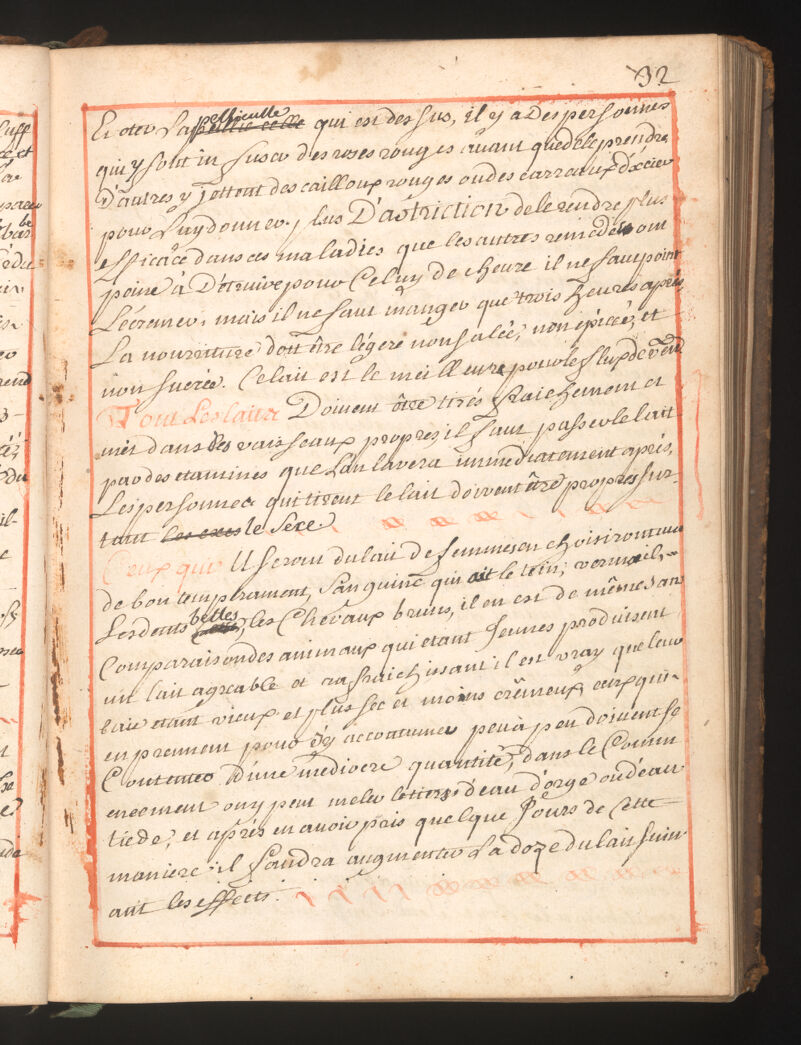 32
Et oter La pellicculle pellic celle qui est dessus, il y a des personnes
qui y font in fuser des roses rouges avant que de le prendre,
D'autres y jettent des cailloux rouges ou des carraux d'acier
pour Luy donner plus D'astriction de le rendre plus
efficace dans ces maladies que les autres remedes ont
peine à Détruire pour Celuy de cheure il ne faut point
L'écremer, mais il ne faut manger que trois heures après,
La nourriture doit être légere non salée, non épiccé, et
non sucrée. Ce lait est le meilleure pour le flux de ventre
Tout Les laits Doivent être tirés fraichement et
mis dans des vaisseaux propres il faut passer le lait
par des etamines que l'on lavera immediatement après,
Les personnes qui tirent le lait doivent être propres sur-
tout les exes le Sexe.
Ceux qui Useront du lait de femmes en choisiront une
de bon temperament, Sanguine qui ait le tein, vermeil,
Les dents belles, les Chevaux bruns, il en est de mêmes an
Comparaison des animaux qui etant Jeunes produisent
un lait agreable et rafraichissant il est vray que leur
lait etant vieux et plus sec et moins crêmeux ceux qui
en prennent pour s'y accoutumer peu à peu doivent se
Contenter D'une mediocre quantité, dans le Comm
encement on y peut meler le tiers d'eau d'orge ou d'eau
tiede, et après en avoir pris quelque Jours de Cette
maniere il faudra augmenter La doze du lait suiv
ant les effects.